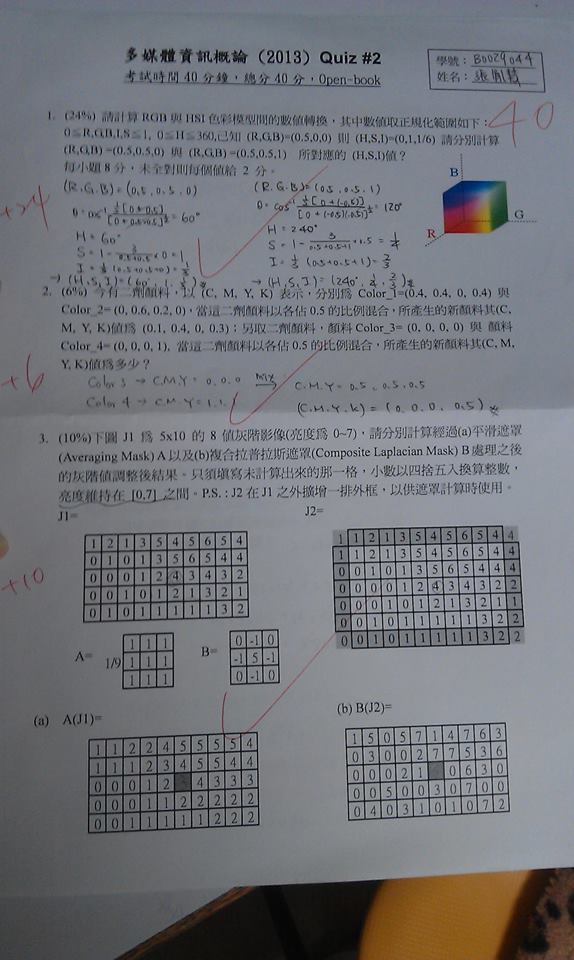 多媒體資訊概論（2013）Quiz #2
考試時間 40 分鐘，總分 40 分，Open-book
學號：B0029044
姓名：
40
1. (24%) 請計算 RGB 與 HSI 色彩模型間的數值轉換，其中數值取正規化範圍如下：
0≦R,G,B,I,S≦1, 0≦H≦360,已知 (R,G,B)=(0.5,0,0) 則 (H,S,I)=(0,1,1/6) 請分別計算
(R,G,B) =(0.5,0.5,0) 與 (R,G,B) =(0.5,0.5,1) 所對應的 (H,S,I)值？
每小題 8 分，未全對則每個值給 2 分。
+24
(R.G.B) = (0.5, 0.5, 0)
θ = cos⁻¹ ½[0+0.5] / [0+0.5×0.5]^½ = 60°
H = 60°
S = 1 - 3/(0.5+0.5+0) × 0 = 1
I = ⅓ (0.5+0.5+0) = ⅓
→ (H, S, I) = (60°, 1, ⅓)
(R.G.B) = (0.5, 0.5, 1)
θ = cos⁻¹ ½[0+(-0.5)] / [0+(-0.5)(-0.5)]^½ = 120°
H = 240°
S = 1 - 3/(0.5+0.5+1) × 0.5 = ¼
I = ⅓ (0.5+0.5+1) = ⅔
→ (H, S, I) = (240°, ¼, ⅔)
B
G
R
2. (6%) 今有二劑顏料，以 (C, M, Y, K) 表示，分別爲 Color_1=(0.4, 0.4, 0, 0.4) 與
Color_2= (0, 0.6, 0.2, 0)，當這二劑顏料以各佔 0.5 的比例混合，所產生的新顏料其(C,
M, Y, K)值爲 (0.1, 0.4, 0, 0.3)；另取二劑顏料，顏料 Color_3= (0, 0, 0, 0) 與 顏料
Color_4= (0, 0, 0, 1), 當這二劑顏料以各佔 0.5 的比例混合，所產生的新顏料其(C, M,
Y, K)值爲多少？
+6
Color 3 → C.M.Y = 0. 0. 0 mix C.M.Y = 0.5, 0.5, 0.5
Color 4 → C.M.Y = 1. 1. 1
(C.M.Y.K) = (0, 0, 0, 0.5)
3. (10%)下圖 J1 爲 5x10 的 8 値灰階影像(亮度爲 0~7)，請分別計算經過(a)平滑遮罩
(Averaging Mask) A 以及(b)複合拉普拉斯遮罩(Composite Laplacian Mask) B 處理之後
的灰階値調整後結果。只須填寫未計算出來的那一格，小數以四捨五入換算整數，
亮度維持在 [0,7] 之間。P.S.：J2 在 J1 之外擴增一排外框，以供遮罩計算時使用。
+10
J1=
1 2 1 3 5 4 5 6 5 4
0 1 0 1 3 5 6 5 4 4
0 0 0 1 2 4 3 4 3 2
0 0 1 0 1 2 1 3 2 1
0 1 0 1 1 1 1 1 3 2
J2=
1 1 2 1 3 5 4 5 6 5 4 4
1 1 2 1 3 5 4 5 6 5 4 4
0 0 1 0 1 3 5 6 5 4 4 4
0 0 0 0 1 2 4 3 4 3 2 2
0 0 0 1 0 1 2 1 3 2 1 1
0 0 1 0 1 1 1 1 1 3 2 2
0 0 1 0 1 1 1 1 1 3 2 2
A=
1/9
1 1 1
1 1 1
1 1 1
B=
0 -1 0
-1 5 -1
0 -1 0
(a) A(J1)=
1 1 2 2 4 5 5 5 5 4
1 1 1 2 3 4 5 5 4 4
0 0 0 1 2 4 3 3 3
0 0 0 1 1 2 2 2 2 2
0 0 1 1 1 1 1 2 2 2
(b) B(J2)=
1 5 0 5 7 1 4 7 6 3
0 3 0 0 2 7 7 5 3 6
0 0 0 2 1 0 6 3 0
0 0 5 0 0 3 0 7 0 0
0 4 0 3 1 0 1 0 7 2